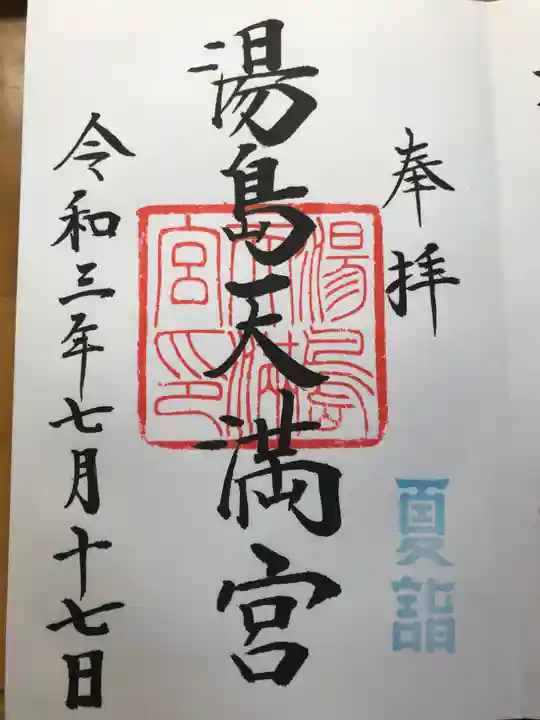 奉拝
夏詣
湯島天満宮
湯島天満宮印
令和三年七月十七日